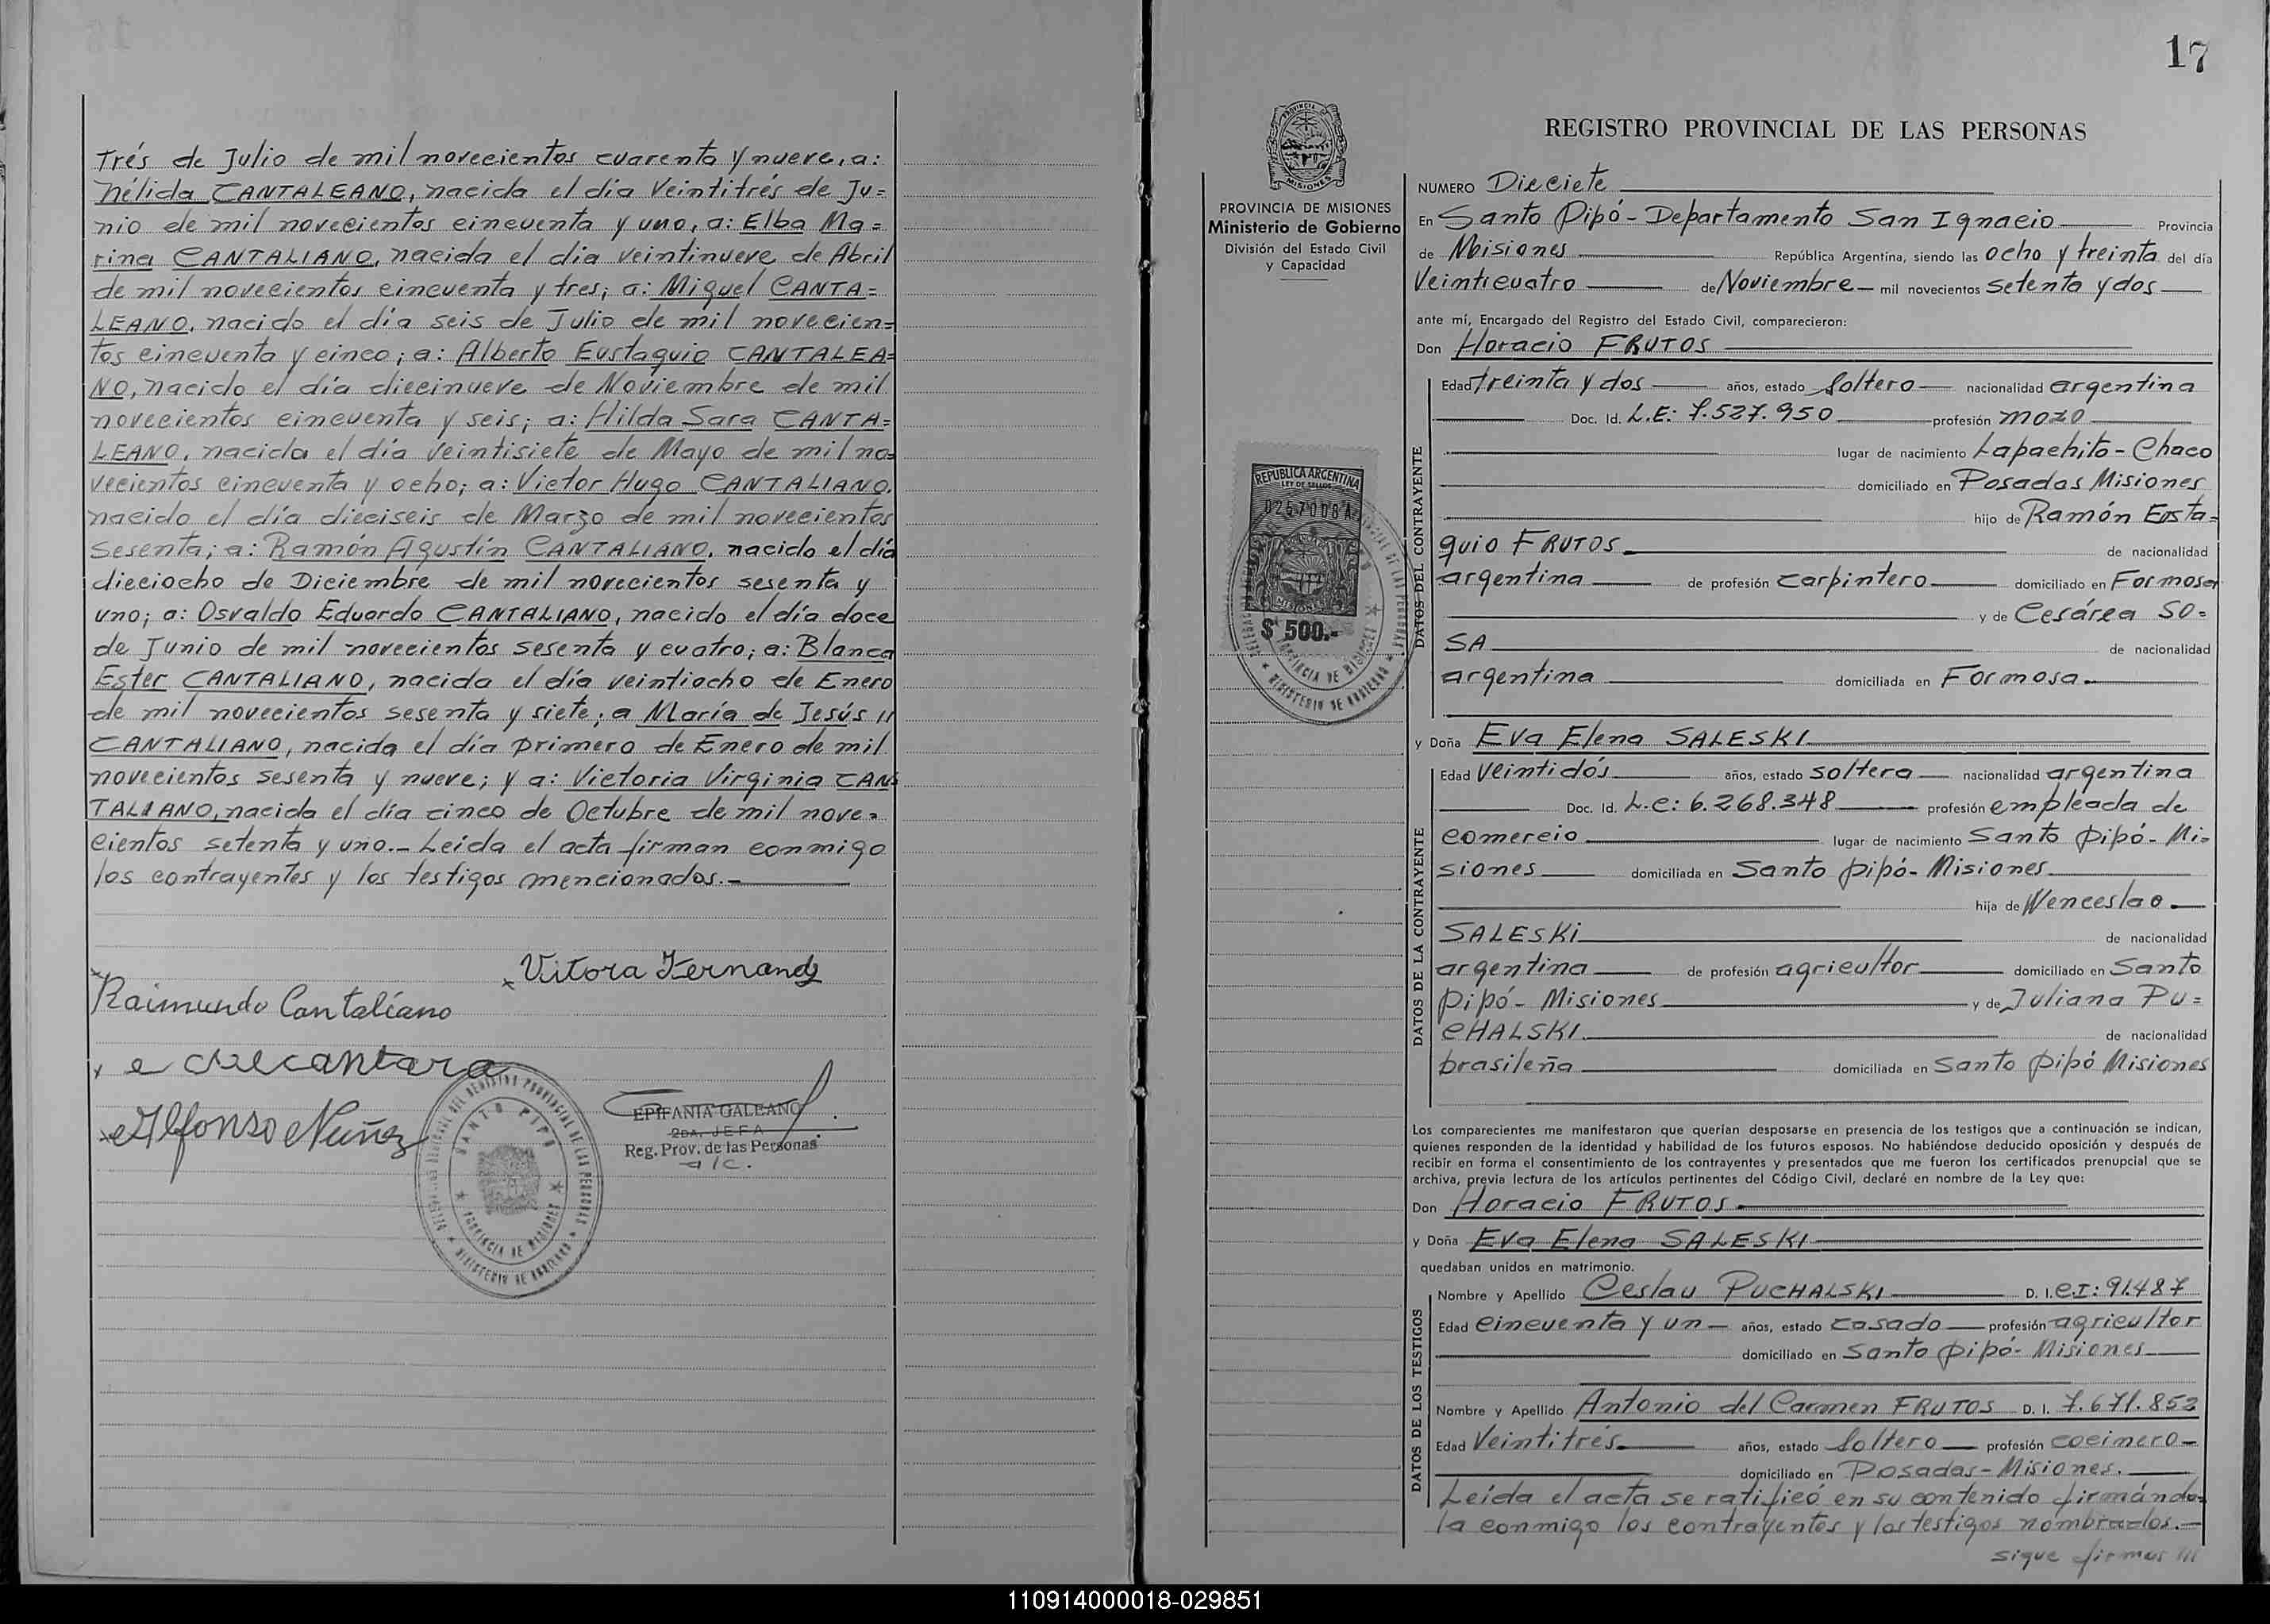 Trés de Julio de mil novecientos cuarenta y nueve, a:
Nélida CANTALEANO, nacida el día Veintitrés de Ju=
nio de mil novecientos cincuenta y uno, a: Elba Ma=
rina CANTALIANO, nacida el día veintinueve de Abril
de mil novecientos cincuenta y tres; a: Miguel CANTA=
LEANO, nacido el día seis de Julio de mil novecien=
tos cincuenta y cinco; a: Alberto Eustaquio CANTALEA=
NO, nacido el día diecinueve de Noviembre de mil
novecientos cincuenta y seis; a: Hilda Sara CANTA=
LEANO, nacida el día veintisiete de Mayo de mil no=
vecientos cincuenta y ocho; a: Victor Hugo CANTALIANO,
nacido el día dieciseis de Marzo de mil novecientos
sesenta; a: Ramón Agustín CANTALIANO, nacido el día
dieciocho de Diciembre de mil novecientos sesenta y
uno; a: Osvaldo Eduardo CANTALIANO, nacido el día doce
de Junio de mil novecientos sesenta y cuatro; a: Blanca
Ester CANTALIANO, nacida el día veintiocho de Enero
de mil novecientos sesenta y siete; a María de Jesús "
CANTALIANO, nacida el día primero de Enero de mil
novecientos sesenta y nueve; y a: Victoria Virginia CAN=
TALIANO, nacida el día cinco de Octubre de mil nove=
cientos setenta y uno.- Leida el acta firman conmigo
los contrayentes y los testigos mencionados.-
x Vitora Fernandz
x Raimundo Cantaliano
x Alfonso Nuñez
EPIFANIA GALEANO
2DA. JEFA
Reg. Prov. de las Personas
a/c.
SANTO PIPO
PROVINCIA DE MISIONES
MINISTERIO DE GOBIERNO
17
PROVINCIA DE MISIONES
Ministerio de Gobierno
División del Estado Civil
y Capacidad
REPUBLICA ARGENTINA
LEY DE SELLOS
0257008 A
MISIONES
$ 500.-
PROVINCIA DE MISIONES
MINISTERIO DE GOBIERNO
REGISTRO PROVINCIAL DE LAS PERSONAS
NUMERO Dieciete
En Santo Pipó - Departamento San Ignacio Provincia
de Misiones República Argentina, siendo las ocho y treinta del día
Veinticuatro de Noviembre - mil novecientos setenta y dos
ante mí, Encargado del Registro del Estado Civil, comparecieron:
Don Horacio FRUTOS
DATOS DEL CONTRAYENTE
Edad treinta y dos años, estado Soltero nacionalidad argentina
Doc. Id. L.E: 7.527.950 profesión mozo
lugar de nacimiento Lapachito - Chaco
domiciliado en Posadas Misiones
hijo de Ramón Eusta=
quio FRUTOS de nacionalidad
argentina de profesión carpintero domiciliado en Formosa
y de Cesárea SO=
SA de nacionalidad
argentina domiciliada en Formosa.
y Doña Eva Elena SALESKI
DATOS DE LA CONTRAYENTE
Edad Veintidós años, estado soltera nacionalidad argentina
Doc. Id. L.C: 6.268.348 profesión empleada de
comercio lugar de nacimiento Santo Pipó - Mi=
siones domiciliada en Santo Pipó - Misiones
hija de Wenceslao
SALESKI de nacionalidad
argentina de profesión agricultor domiciliado en Santo
Pipó - Misiones y de Juliana PU=
CHALSKI de nacionalidad
brasileña domiciliada en Santo Pipó Misiones
Los comparecientes me manifestaron que querían desposarse en presencia de los testigos que a continuación se indican,
quienes responden de la identidad y habilidad de los futuros esposos. No habiéndose deducido oposición y después de
recibir en forma el consentimiento de los contrayentes y presentados que me fueron los certificados prenupcial que se
archiva, previa lectura de los artículos pertinentes del Código Civil, declaré en nombre de la Ley que:
Don Horacio FRUTOS
y Doña Eva Elena SALESKI
quedaban unidos en matrimonio.
DATOS DE LOS TESTIGOS
Nombre y Apellido Ceslau PUCHALSKI D. I. C.I: 91.487
Edad cincuenta y un - años, estado casado profesión agricultor
domiciliado en Santo Pipó - Misiones
Nombre y Apellido Antonio del Carmen FRUTOS D. I. 7.671.852
Edad Veintitrés años, estado Soltero profesión cocinero -
domiciliado en Posadas - Misiones.
Leida el acta se ratificó en su contenido firmándo=
la conmigo los contrayentes y los testigos nombrados.-
sigue firmas ///
110914000018-029851